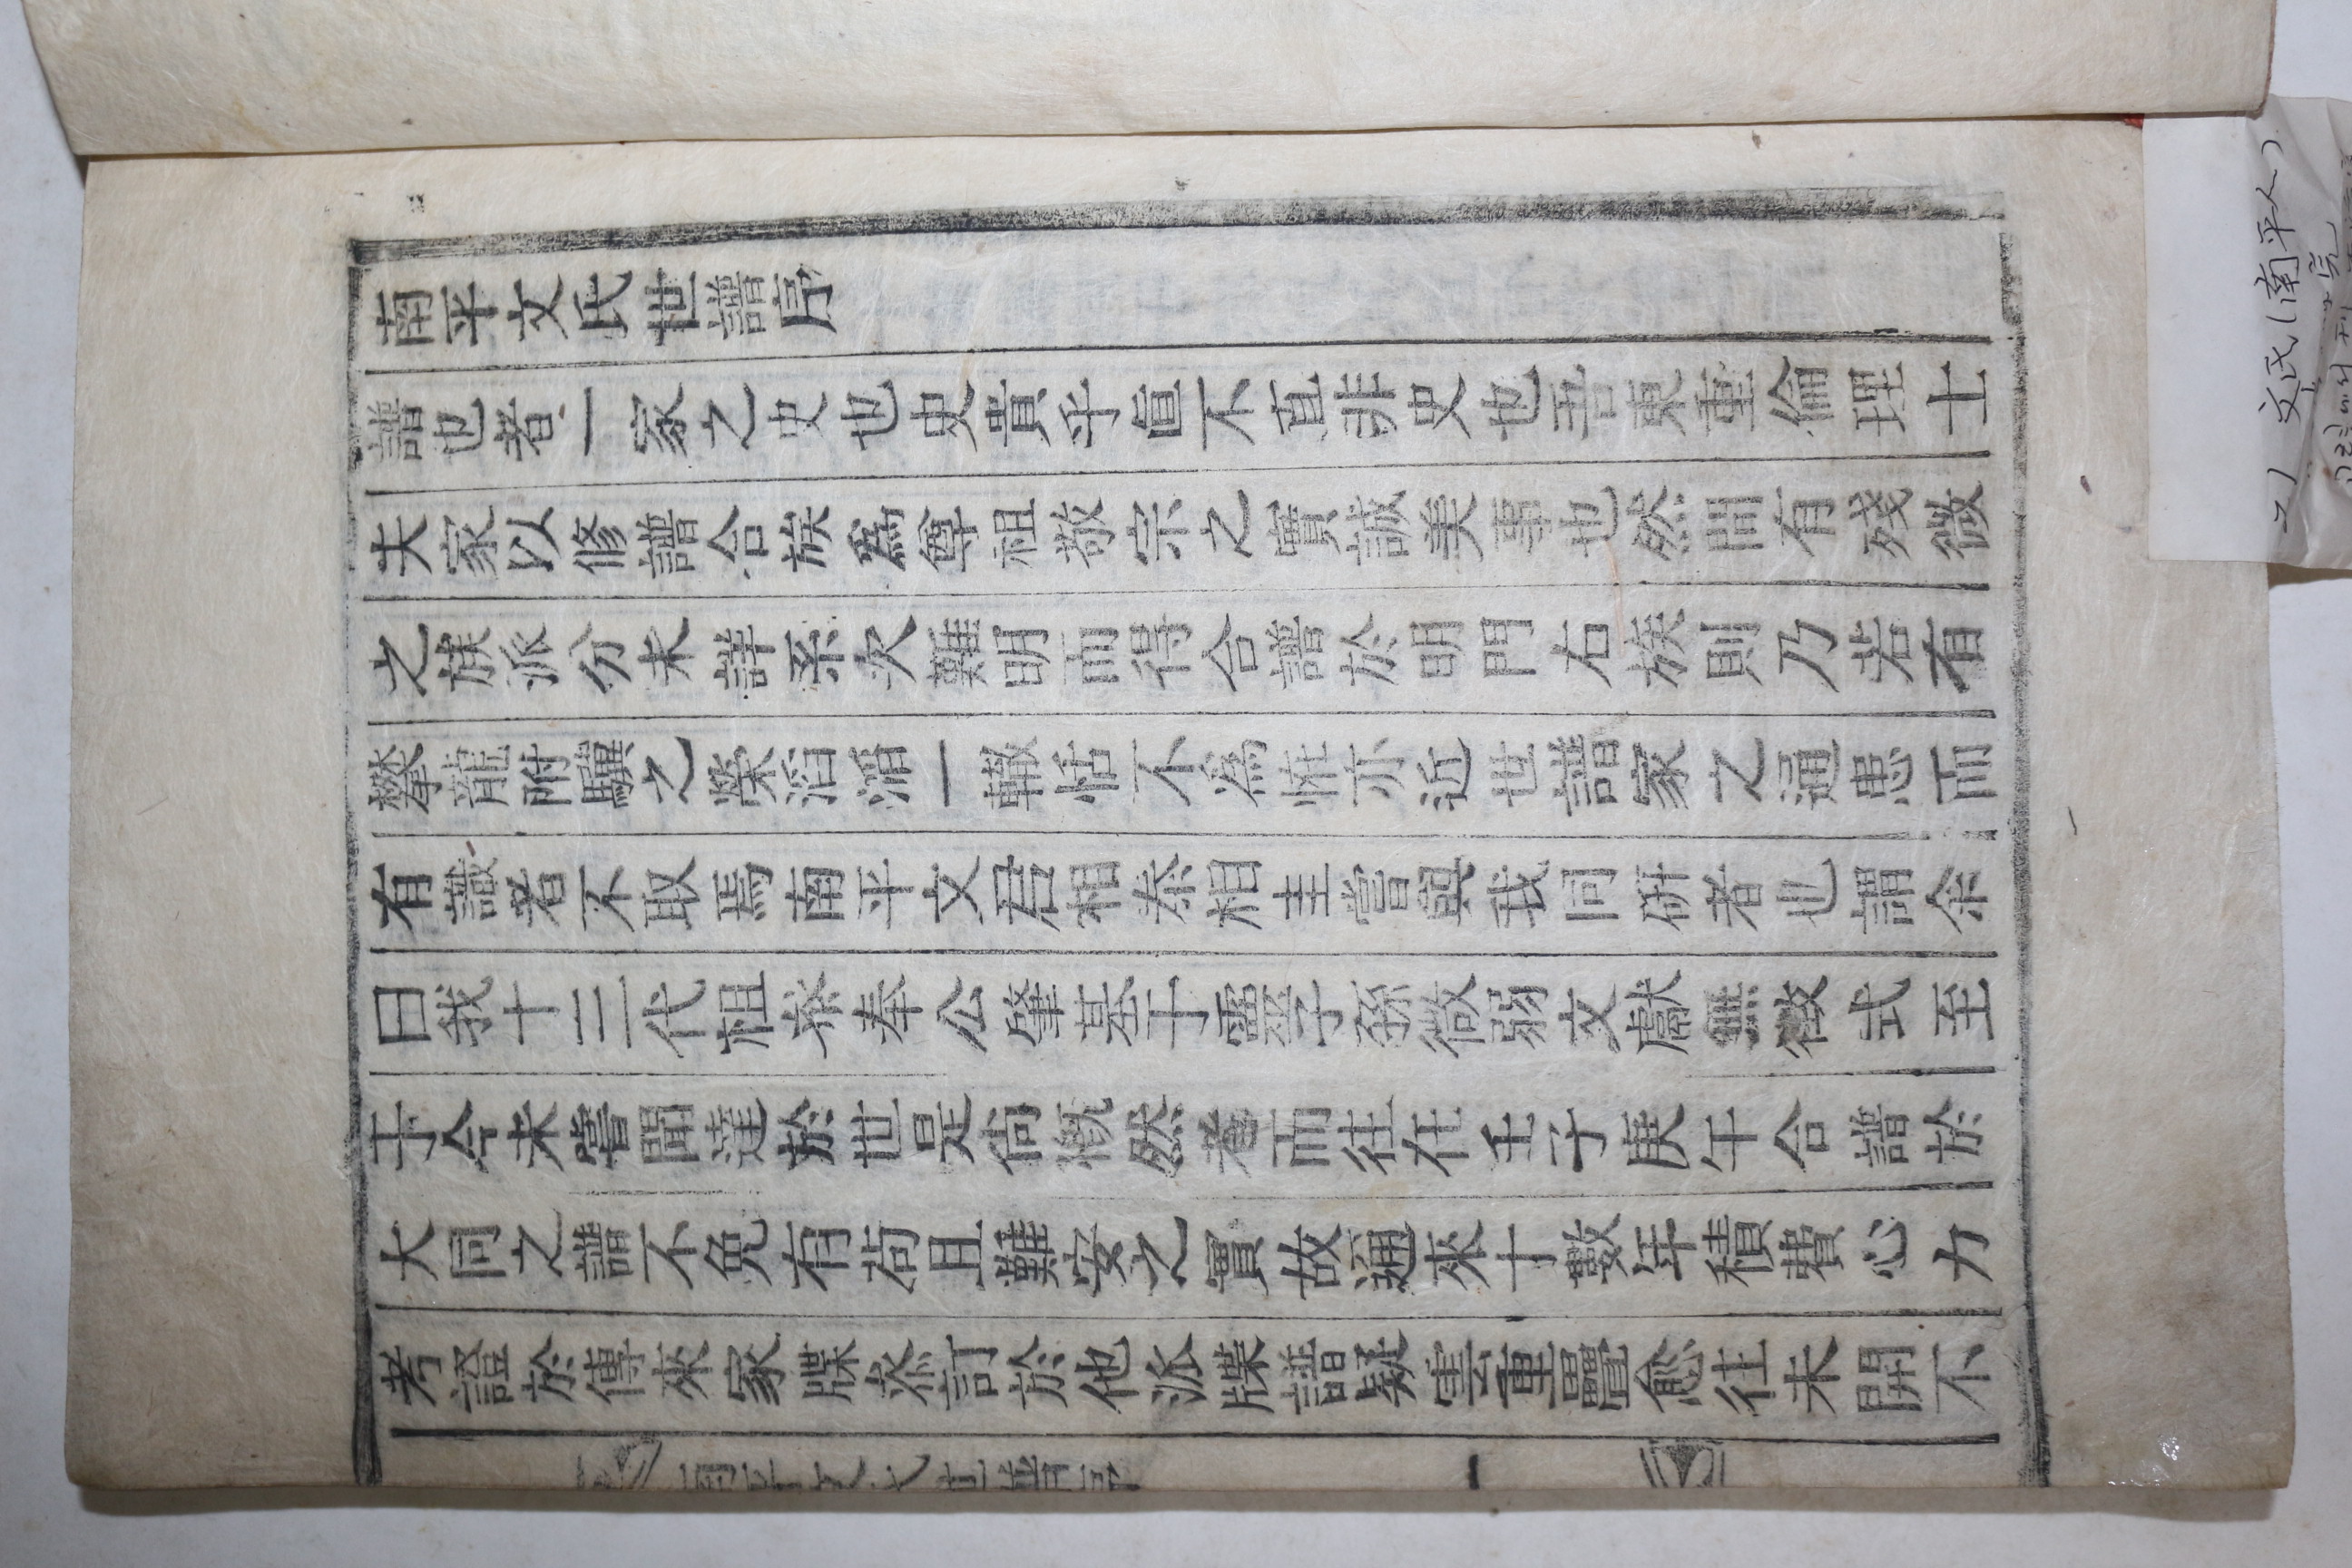 南平文氏世譜序
譜也者一家之史也史貴乎直不直非史也吾東重倫理士
夫家以修譜合族爲尊祖敬宗之實誠美事也然間有殘微
之族派分未詳系次難明而得合譜於明門右族則乃若有
攀龍附驥之榮滔滔一轍恬不爲恠亦近世譜家之通患而
有識者不取焉南平文君相泰相圭嘗與我同硏者也謂余
曰我十三代祖叅奉公肇基于靈子孫微弱文獻無徵式至
于今未嘗聞達於世是尙慨然者而往在壬子庚午合譜於
大同之譜不免有苟且難安之實故通來十數年積費心力
考證於傳來家牒叅訂於他派牒譜疑雲重疊愈往未開不
南平文氏世譜序
一
文氏(南平人)